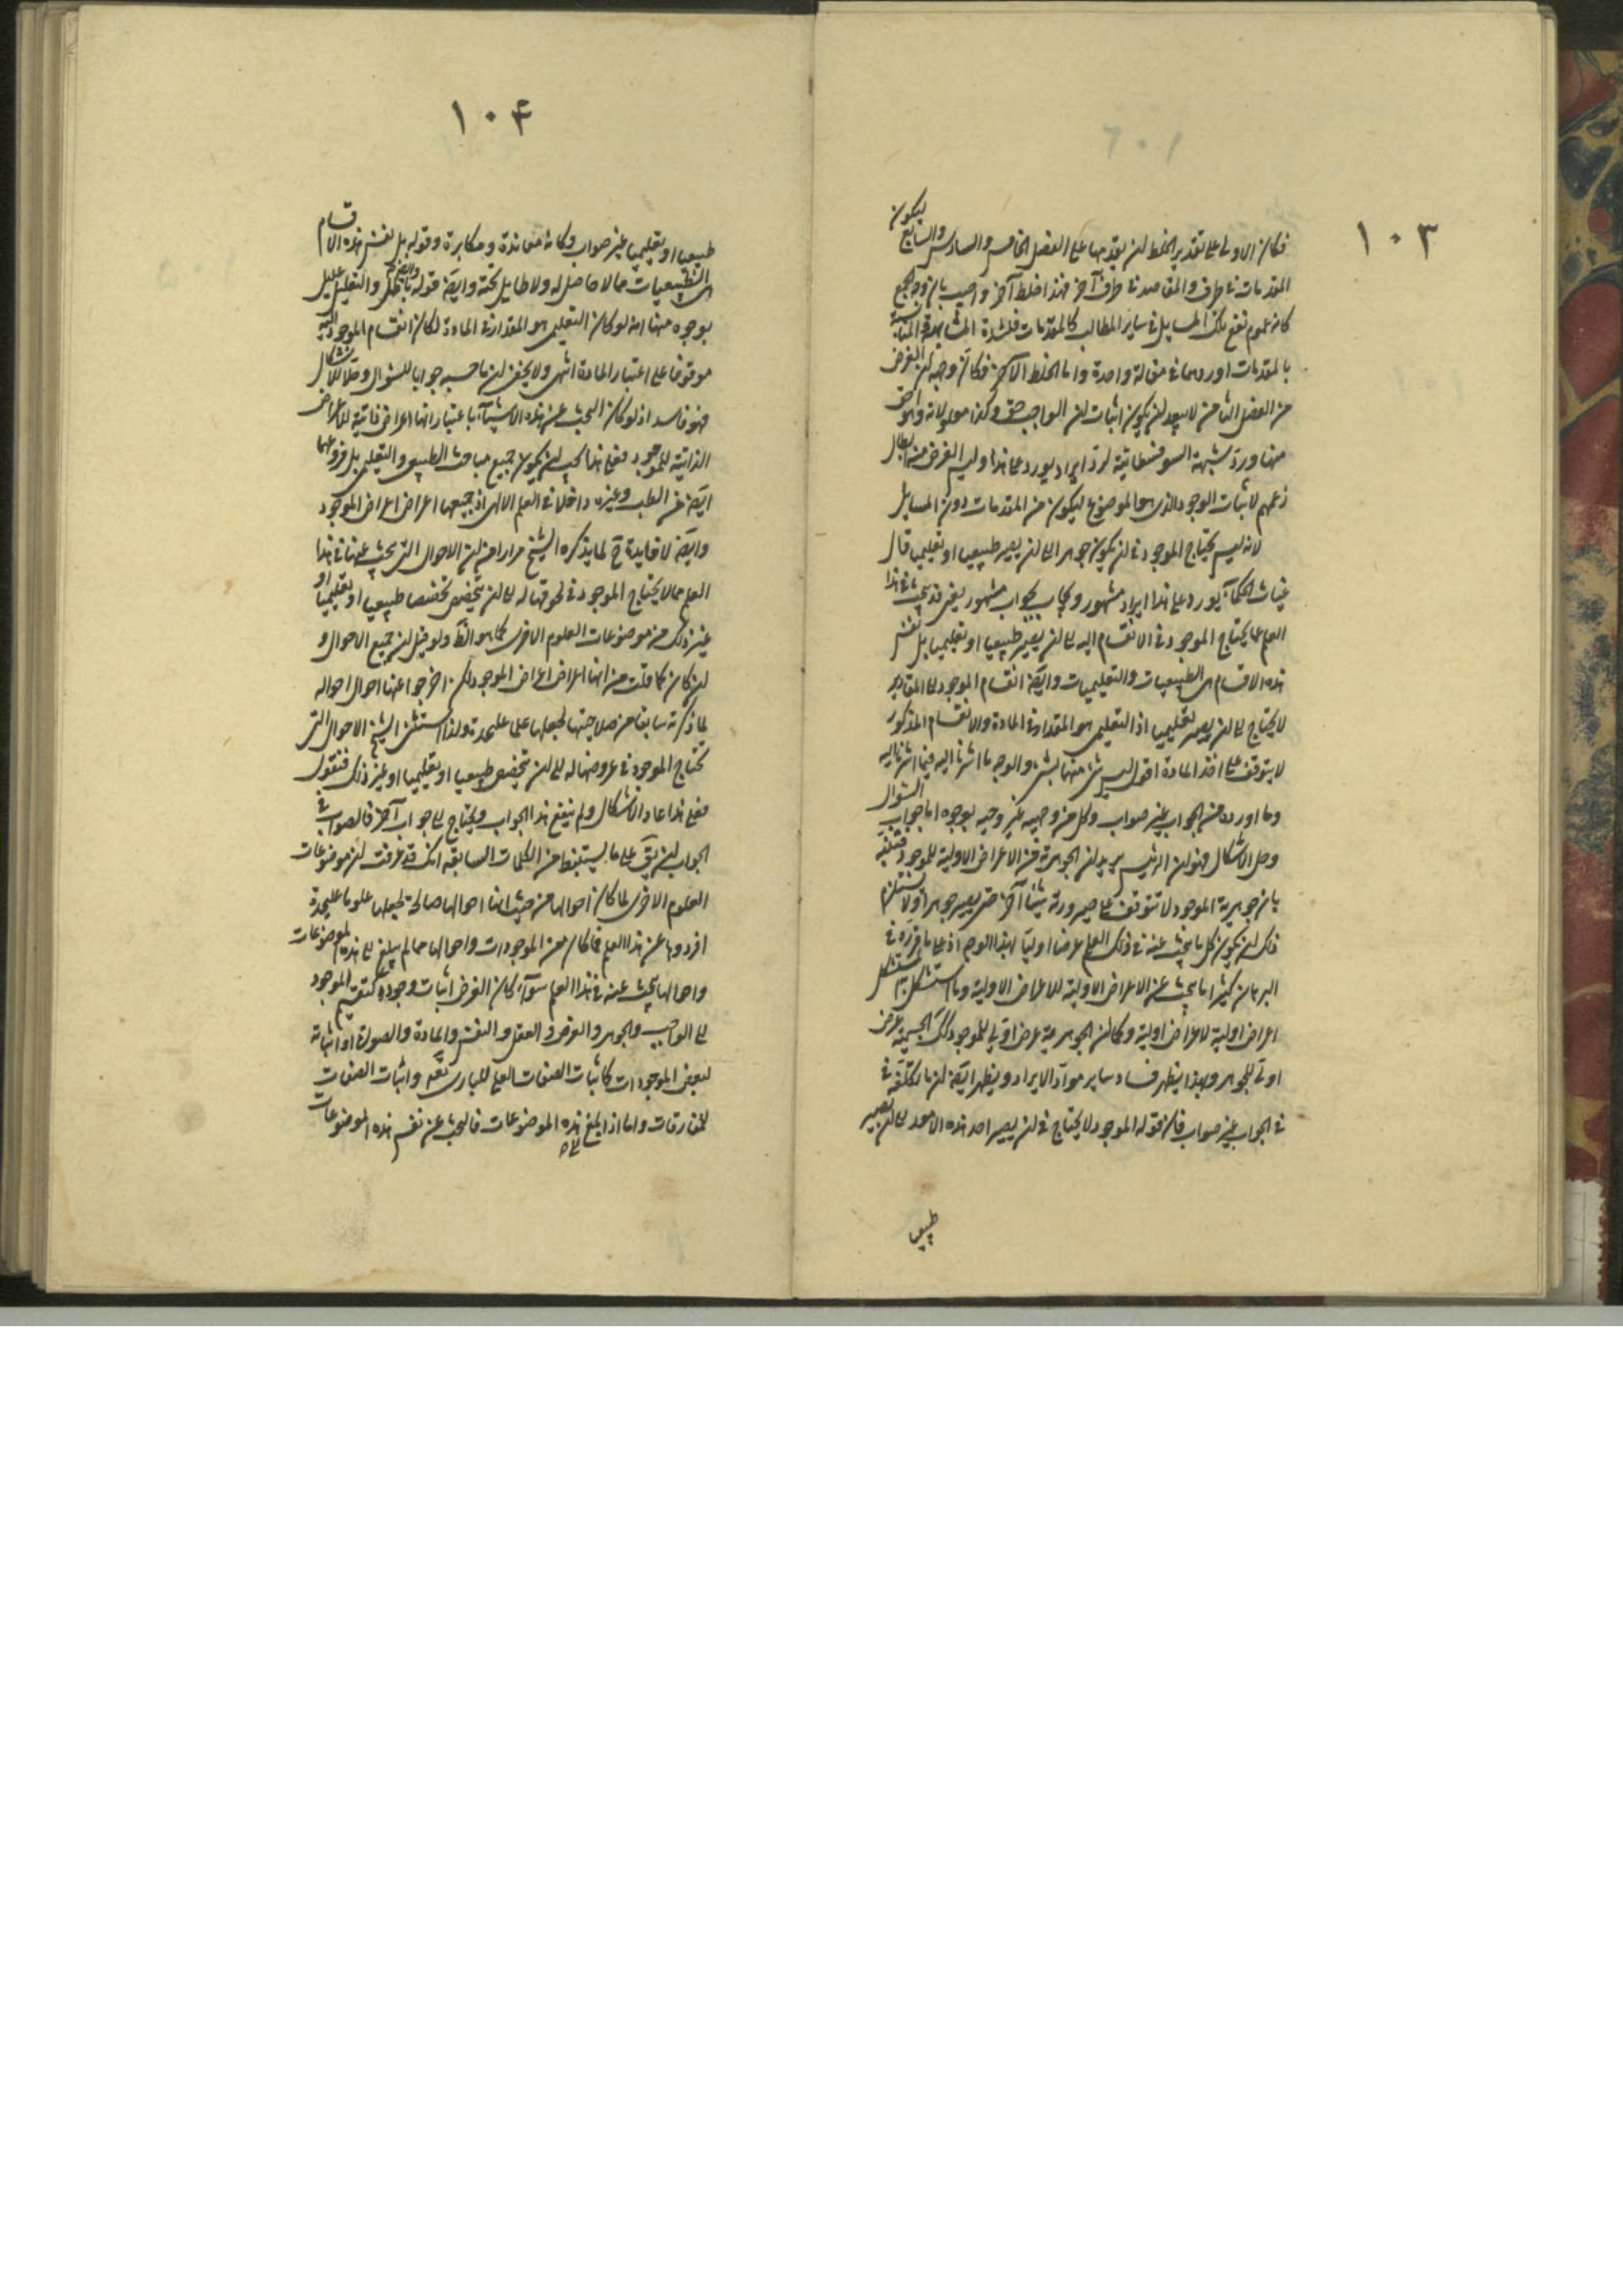 ١٠٣
فكان الاولى على تقدير الخلط ان يقدمها على الفصل الخامس والسادس والسابع ليكون
المقدمات فى طرف والمقاصد فى طرف آخر فهذا خلط آخر واجيب بان وجه الجمع
كان عموم نفع تلك المسايل فى ساير المطالب كالمقدمات فلشدة المشابهة المناسبة
بالمقدمات اوردهما فى مقالة واحدة واما الخلط الآخر فكان وجه ان الغرض
من الفصل الثامن لا يبعد ان يكون اثبات ان الواجب حق وكذا معلولاته ولواحق
منها ورد شبهة السوفسطائية لرد ايراد يورد على هذا وليس الغرض منه ابطال
زعمهم لاثبات الوجود الذى هو الموضوع ليكون من المقدمات دون المسايل
لانه ليس يحتاج الموجود فى ان يكون جوهرا الى ان يصير طبيعيا او تعليميا قال
غياث الحكماء يورد على هذا ايراد مشهور ويجاب بجواب مشهور يعنى قد يبحث فى هذا
العلم عما يحتاج الموجود فى الانقسام اليه الى ان يصير طبيعيا او تعليميا بل نفس
هذه الاقسام هى الطبيعيات والتعليميات وايضا انقسام الموجود الى المقادير
لا يحتاج الى ان يصير تعليميا اذ التعليمى هو المقدار فى المادة والانقسام المذكور
لا يتوقف على اخذ المادة اقول ليس شئ منها بشئ والوجه ما اشرنا اليه فيما اشرنا اليه
وما اورده من الجواب غير صواب وكل من وجهيه غير وجيه بوجوه اما جواب السؤال
وحل الاشكال فهو ان الرئيس يريد ان الجوهرية من الاعراض الاولية للموجود
بان جوهرية الموجود لا تتوقف على صيرورته شيئا آخر حتى يصير جوهرا ولا يستلزم
ذلك ان يكون كل ما يبحث عنه فى ذلك العلم عرضا اوليا لهذا العلم اذ على ما قرره فى
البرهان كثيرا ما يبحث عن الاعراض الاولية للاعراض الاولية وما استشكل به مستشكل
اعراض اولية لاعراض اولية وكما ان الجوهرية عرض اولى للموجود كذلك الجسمية عرض
اولى للجوهر وبهذا يظهر فساد ساير مواد الايراد ويظهر ايضا ان ما تكلفه فى
فى الجواب غير صواب فان قوله الموجود لا يحتاج فى ان يصير احد هذه الامور الى ان يصير
طبيعيا
١٠٤
طبيعيا او تعليميا غير صواب وكانه معاندة ومكابرة وقوله بل نفس هذه الاقسام
هى الطبيعيات مما لا حاصل له ولا طايل تحته وايضا قوله والتعليل عليل
بوجوه منها انه لو كان التعليمى هو المقدار فى المادة لكان انقسام الموجود اليه
موقوفا على اعتبار المادة انتهى ولا يخفى ان ما حسبه جوابا للسؤال وحلا للاشكال
فهو فاسد اذ لو كان البحث عن هذه الاشياء باعتبار انها اعراض ذاتية للاعراض
الذاتية للموجود فعلى هذا يجب ان يكون جميع مباحث الطبيعى والتعليمى بل فروعهما
ايضا من الطب وغيره داخلا فى العلم الالهى اذ جميعها اعراض اعراض الموجود
وايضا لا فايدة ح لما يذكره الشيخ مرارا من ان الاحوال التى يبحث عنها فى هذا
العلم مما لا يحتاج الموجود فى لحوقها له الى ان يتخصص تخصصا طبيعيا او تعليميا او
غير ذلك من موضوعات العلوم الاخرى كما هو الظ ولو قيل ان جميع الاحوال و
ان كان كما قلت من انها اعراض اعراض الموجود لكن اخرجوا عنها احوال احواله
لما ذكرته سابقا من صلاحيتها لجعلها علما عليحدة ولذا استثنى الشيخ الاحوال التى
تحتاج الموجود فى عروضها له الى ان يتخصص طبيعيا او تعليميا او غير ذلك فنقول
فعلى هذا عاد الاشكال ولم ينفع هذا الجواب ويحتاج الى جواب آخر فالصواب فى
الجواب ان يق على ما يستنبط من الكلمات السابقة انك قد عرفت ان موضوعات
العلوم الاخرى لما كان احوالها من حيث انها احوالها صالحة لجعلها علوما عليحدة
افردوها عن هذا العلم فما كان من الموجودات واحوالها مما لم يبلغ الى هذه الموضوعات
واحوالها يبحث عنه فى هذا العلم سوآء كان الغرض اثبات وجوده كتقسيم الموجود
الى الواجب والجوهر والعرض والعقل والنفس والمادة والصورة او اثباته
لبعض الموجودات كاثبات الصفات العلى للبارى تعه واثبات الصفات
للمفارقات واما اذا بلغ الى هذه الموضوعات فالبحث عن نفس هذه الموضوعات